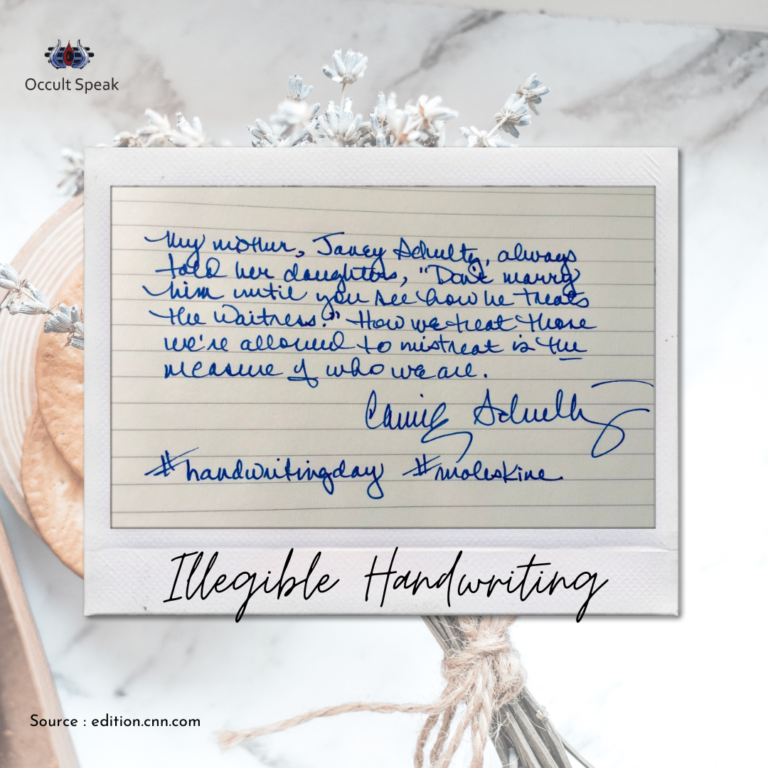 Occult Speak
My mother, Janey Schultz, always
told her daughters, "Don't marry
him until you see how he treats
the waitress." How we treat those
we're allowed to mistreat is the
measure of who we are.
Connie Schultz
#handwritingday #moleskine
Illegible Handwriting
Source : edition.cnn.com